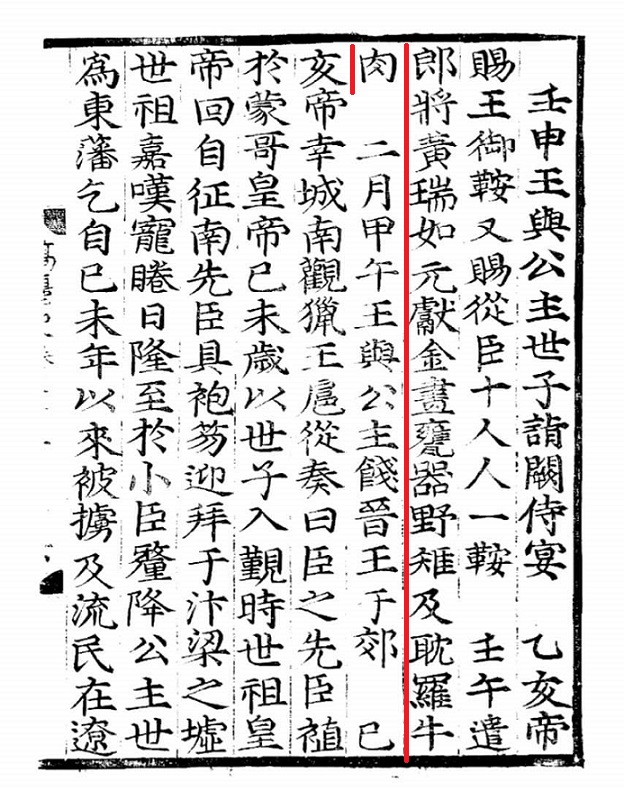 壬申王與公主世子詣闕侍宴　乙亥帝
賜王御鞍又賜從臣十人人一鞍　壬午遣
郎將黃瑞如元獻金畫甕器野雉及耽羅牛
肉　二月甲午王與公主餞晉王于郊　巳
亥帝幸城南觀獵王扈從奏曰臣之先臣禃
於蒙哥皇帝巳未歲以世子入覲時世祖皇
帝回自征南先臣具袍笏迎拜于汴梁之墟
世祖嘉嘆寵睠日隆至於小臣釐降公主世
爲東藩乞自巳未年以來被擄及流民在遼